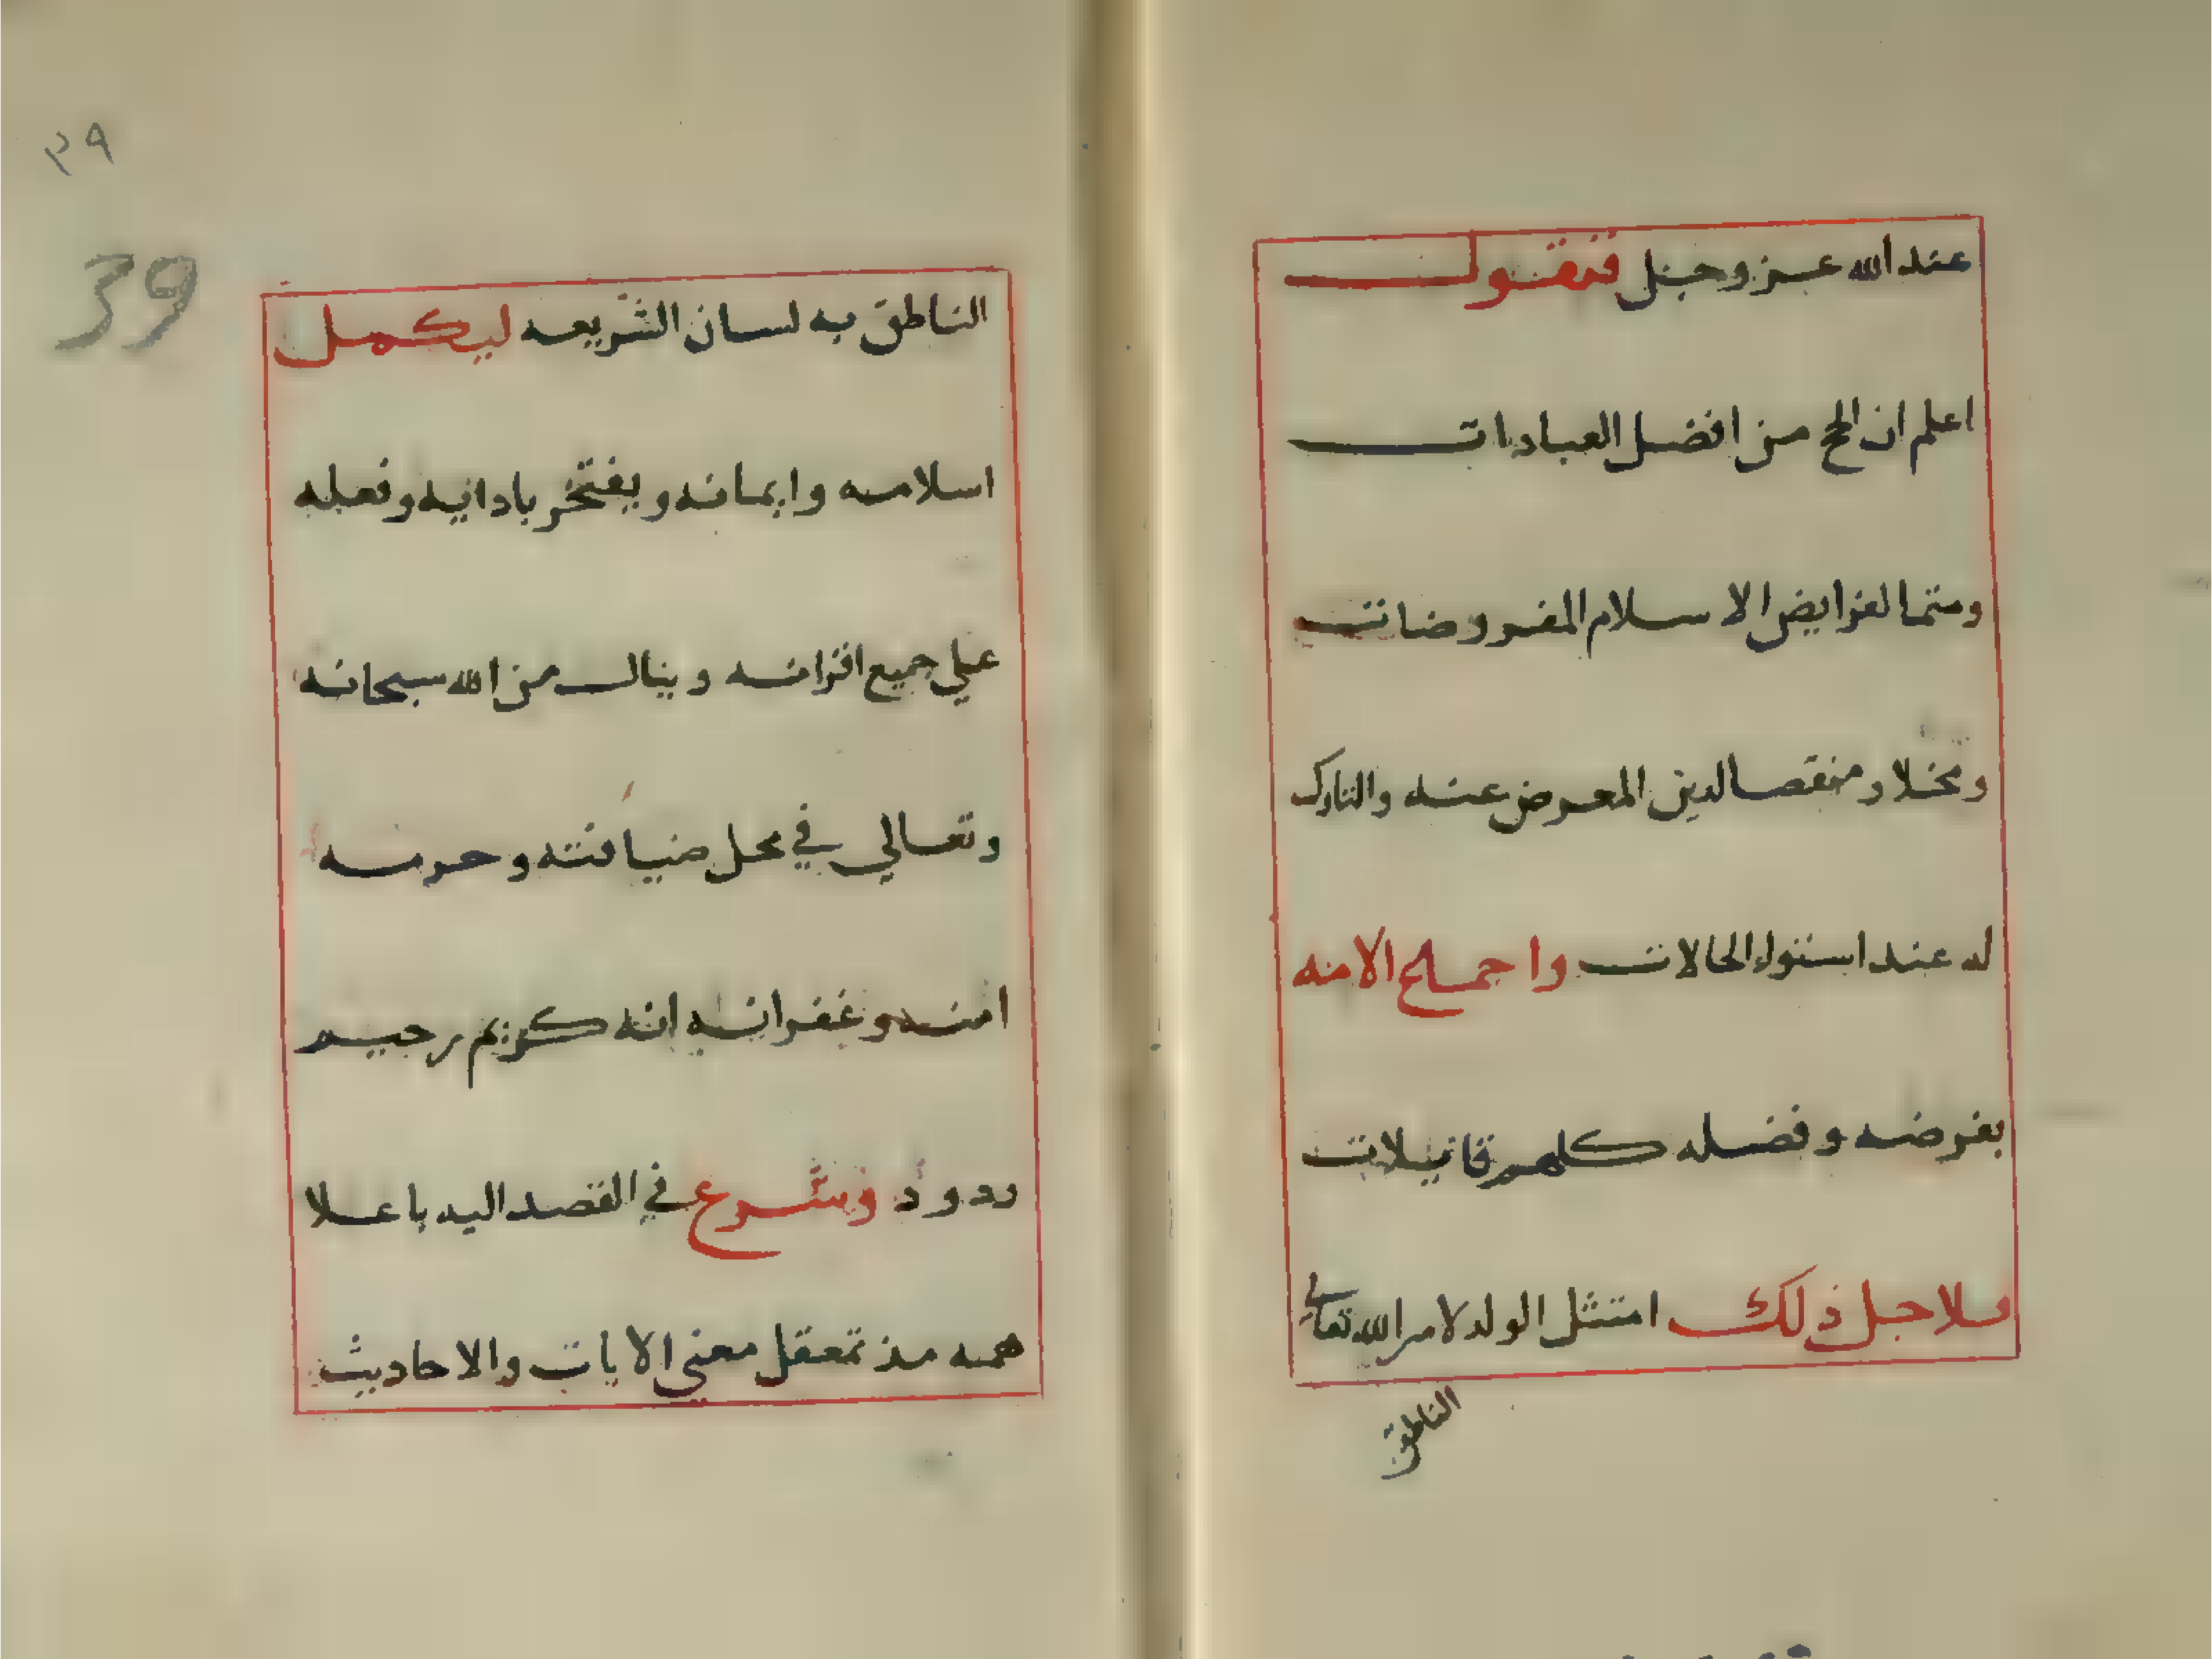 عند الله عز وجل فنقول
اعلم ان الحج من افضل العبادات
ومتما لفرايض الاسلام المفروضات
ومخلا ومنقصا لدين المعرض عنه والتارك
له عند استواء الحالات واجمع الامه
بفرضه وفضله كلهم قائيلات
فلاجل ذلك امتثل الولد لامر الله تعالي
الناطق
٣٩
39
الناطق به لسان الشريعه ليكمل
اسلامه وايمانه ويفتخر بادائيه وفعله
علي جميع اقرانه وينال من الله سبحانه
وتعالي في محل ضيافته وحرمه
امنه وغفرانه انه كريم رحيم
ودود وشرع في القصد اليه باعلا
همه مذ تمعقل معني الايات والاحاديث